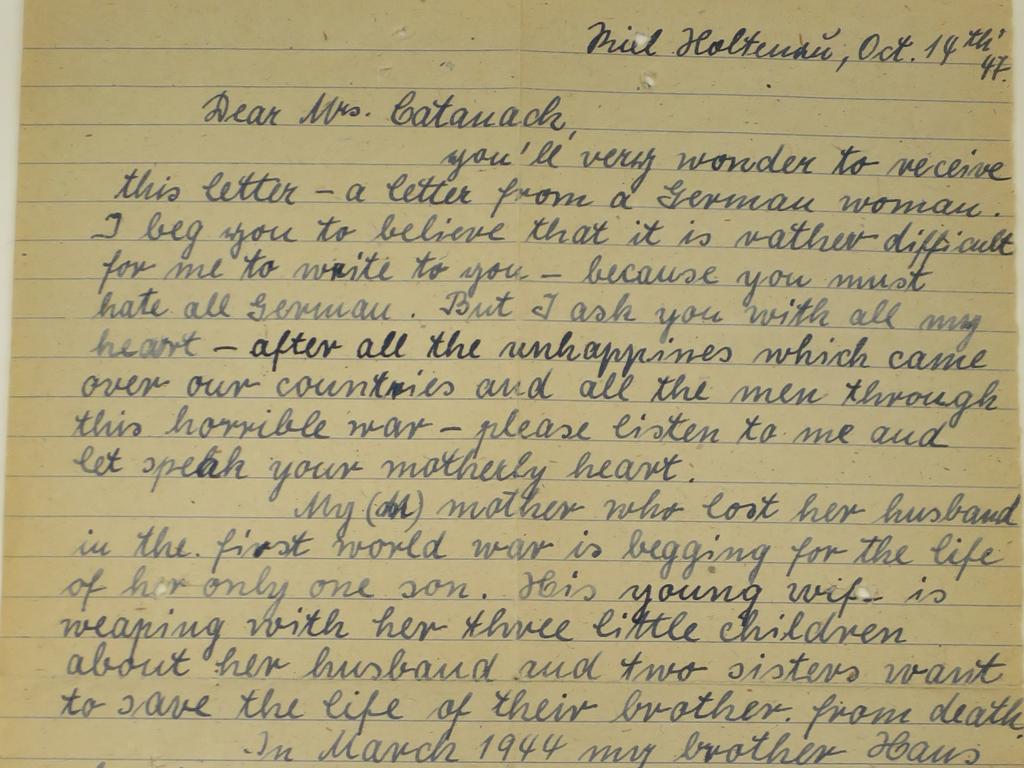 Kiel Holtenau, Oct. 14th' 47.
Dear Mrs. Catanach,
you'll very wonder to receive
this letter – a letter from a German woman.
I beg you to believe that it is rather difficult
for me to write to you – because you must
hate all German. But I ask you with all my
heart – after all the unhappines which came
over our countries and all the men through
this horrible war – please listen to me and
let speak your motherly heart.
My (M) mother who lost her husband
in the first world war is begging for the life
of her only one son. His young wife is
weaping with her three little children
about her husband and two sisters want
to save the life of their brother. from death.
In March 1944 my brother Hans